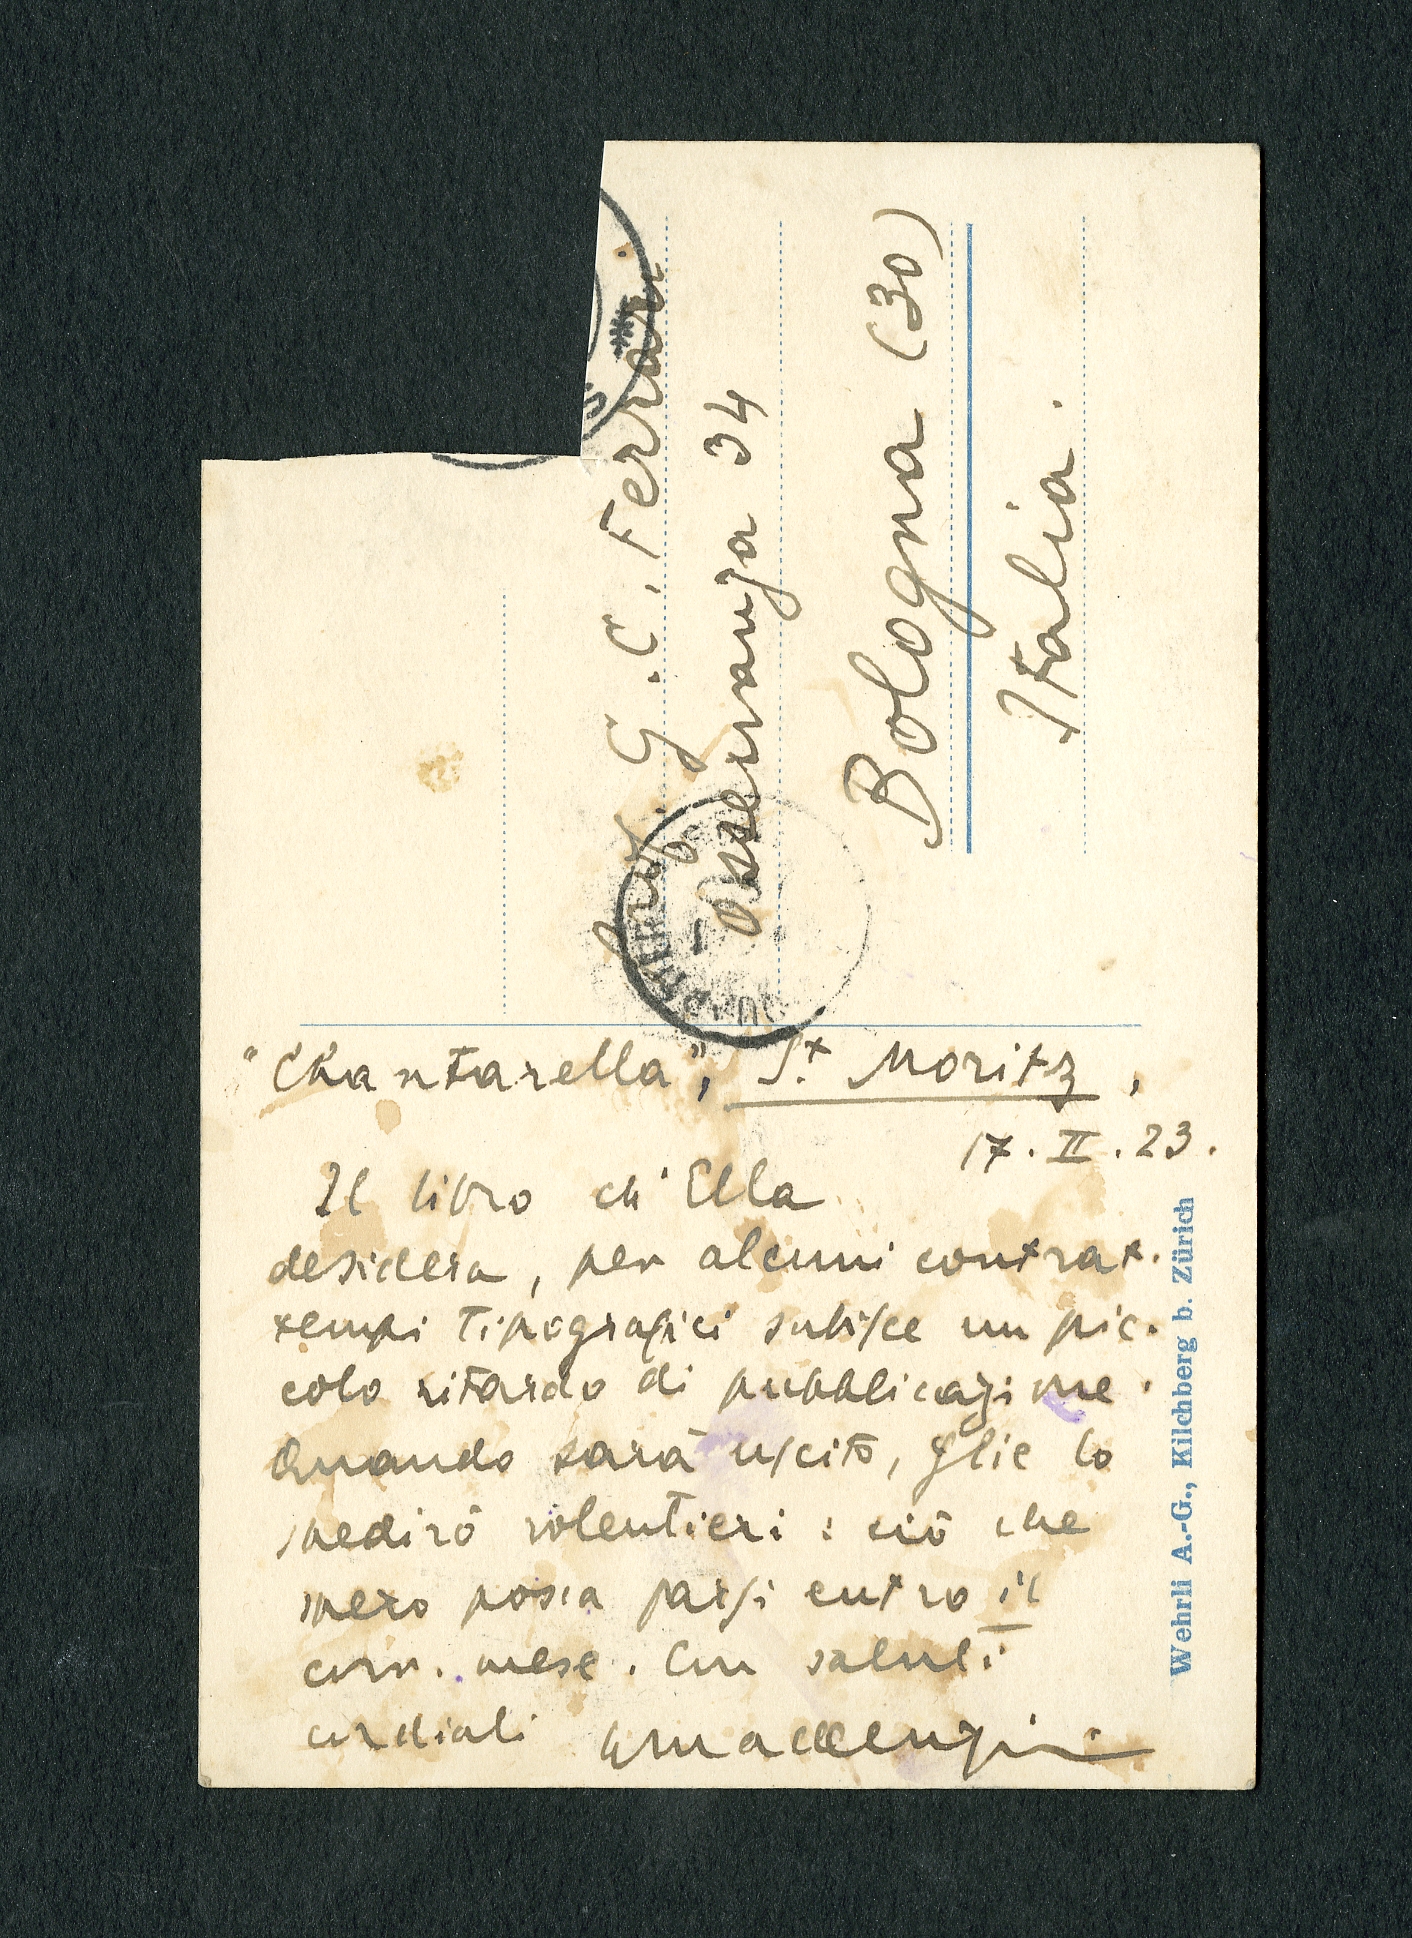 Prof. G. C. Ferrari.
Osservanza 34
Bologna (30)
Italia.
"Chantarella", St. Moritz,
17. II. 23.
Il libro ch'Ella
desidera, per alcuni contrat-
tempi tipografici subisce un pic-
colo ritardo di pubblicazione.
Quando sarà uscito, glie lo
spedirò volentieri: ciò che
spero possa farsi entro il
corr. mese. Con saluti
cordiali GMacCenzi
Wehrli A.-G., Kilchberg b. Zürich